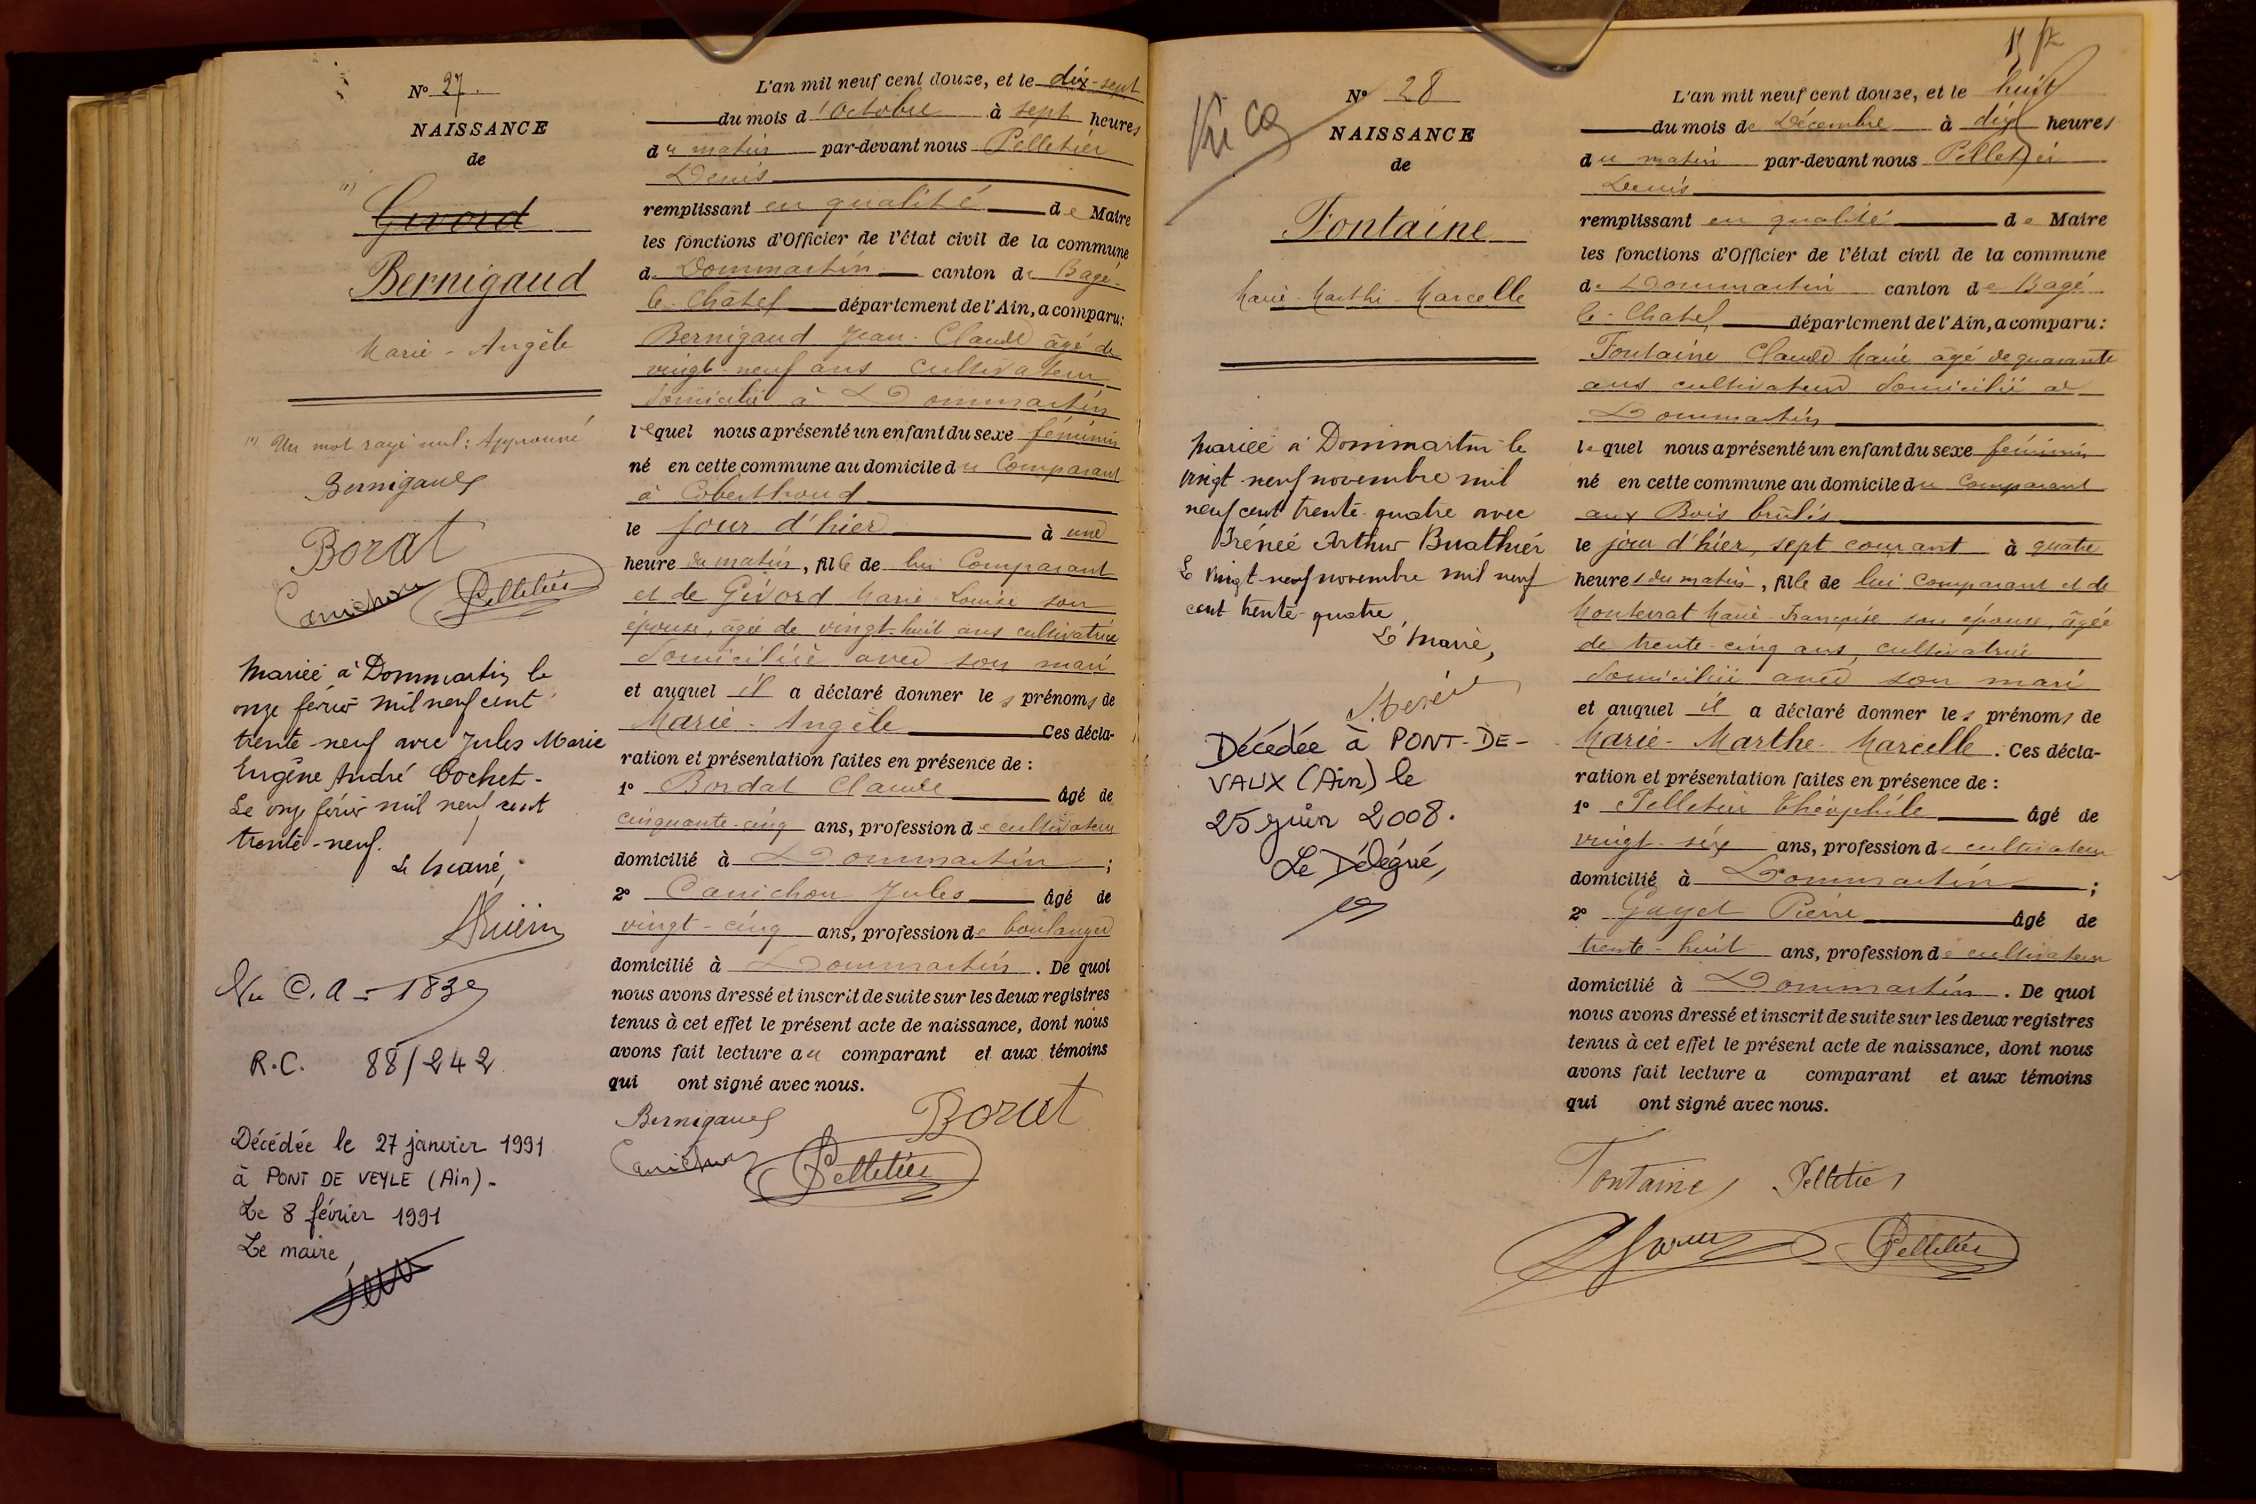 N° 27.
NAISSANCE
de
(1)
Givord
Bernigaud
Marie - Angèle
(1) Un mot rayé nul : Approuvé
Bernigaud
Borat
Canichon Pelletier
Mariée à Dommartin le
onze février mil neuf cent
trente-neuf avec Jules Marie
Eugène André Cochet-
Le onze février mil neuf cent
trente-neuf.
Le Maire,
Vu C.A - 1839
R.C. 88/242
Décédée le 27 janvier 1991
à PONT DE VEYLE (Ain)-
Le 8 février 1991
Le maire
L'an mil neuf cent douze, et le dix-sept
du mois d'Octobre à sept heures
du matin par-devant nous Pelletier
Denis
remplissant en qualité de Maire
les fonctions d'Officier de l'état civil de la commune
de Dommartin canton de Bagé-
le-Châtel département de l'Ain, a comparu:
Bernigaud Jean-Claude âgé de
vingt-neuf ans cultivateur
domicilié à Dommartin
lequel nous a présenté un enfant du sexe féminin
né en cette commune au domicile du Comparant
à Coberthoud
le jour d'hier à une
heure du matin, fille de lui Comparant
et de Givord Marie-Louise son
épouse, âgée de vingt-huit ans cultivatrice
domiciliée avec son mari
et auquel il a déclaré donner les prénoms de
Marie-Angèle Ces décla-
ration et présentation faites en présence de :
1° Bordat Claude âgé de
cinquante-cinq ans, profession de cultivateur
domicilié à Dommartin ;
2° Canichon Jules âgé de
vingt-cinq ans, profession de boulanger
domicilié à Dommartin. De quoi
nous avons dressé et inscrit de suite sur les deux registres
tenus à cet effet le présent acte de naissance, dont nous
avons fait lecture au comparant et aux témoins
qui ont signé avec nous.
Bernigaud Borat
Canichon Pelletier
N° 28
NAISSANCE
de
Fontaine
Marie-Marthe-Marcelle
Mariée à Dommartin le
vingt-neuf novembre mil
neuf cent trente-quatre avec
Irénée Arthur Buathier
Le vingt-neuf novembre mil neuf
cent trente-quatre
Le Maire,
Décédée à PONT-DE-
VAUX (Ain) le
25 juin 2008.
Le Délégué,
L'an mil neuf cent douze, et le huit
du mois de Décembre à dix heures
du matin par-devant nous Pelletier
Denis
remplissant en qualité de Maire
les fonctions d'Officier de l'état civil de la commune
de Dommartin canton de Bagé
le-Chatel département de l'Ain, a comparu:
Fontaine Claude Marie âgé de quarante
ans cultivateur domicilié à
Dommartin
lequel nous a présenté un enfant du sexe féminin
né en cette commune au domicile du Comparant
aux Bois brûlés
le jour d'hier, sept courant à quatre
heures du matin, fille de lui comparant et de
Monterrat Marie-Françoise son épouse, âgée
de trente-cinq ans, cultivatrice
domiciliée avec son mari
et auquel il a déclaré donner les prénoms de
Marie-Marthe-Marcelle. Ces décla-
ration et présentation faites en présence de :
1° Pelletier Théophile âgé de
vingt-six ans, profession de cultivateur
domicilié à Dommartin ;
2° Guyet Pierre âgé de
trente-huit ans, profession de cultivateur
domicilié à Dommartin. De quoi
nous avons dressé et inscrit de suite sur les deux registres
tenus à cet effet le présent acte de naissance, dont nous
avons fait lecture a comparant et aux témoins
qui ont signé avec nous.
Fontaine Pelletier
Pelletier